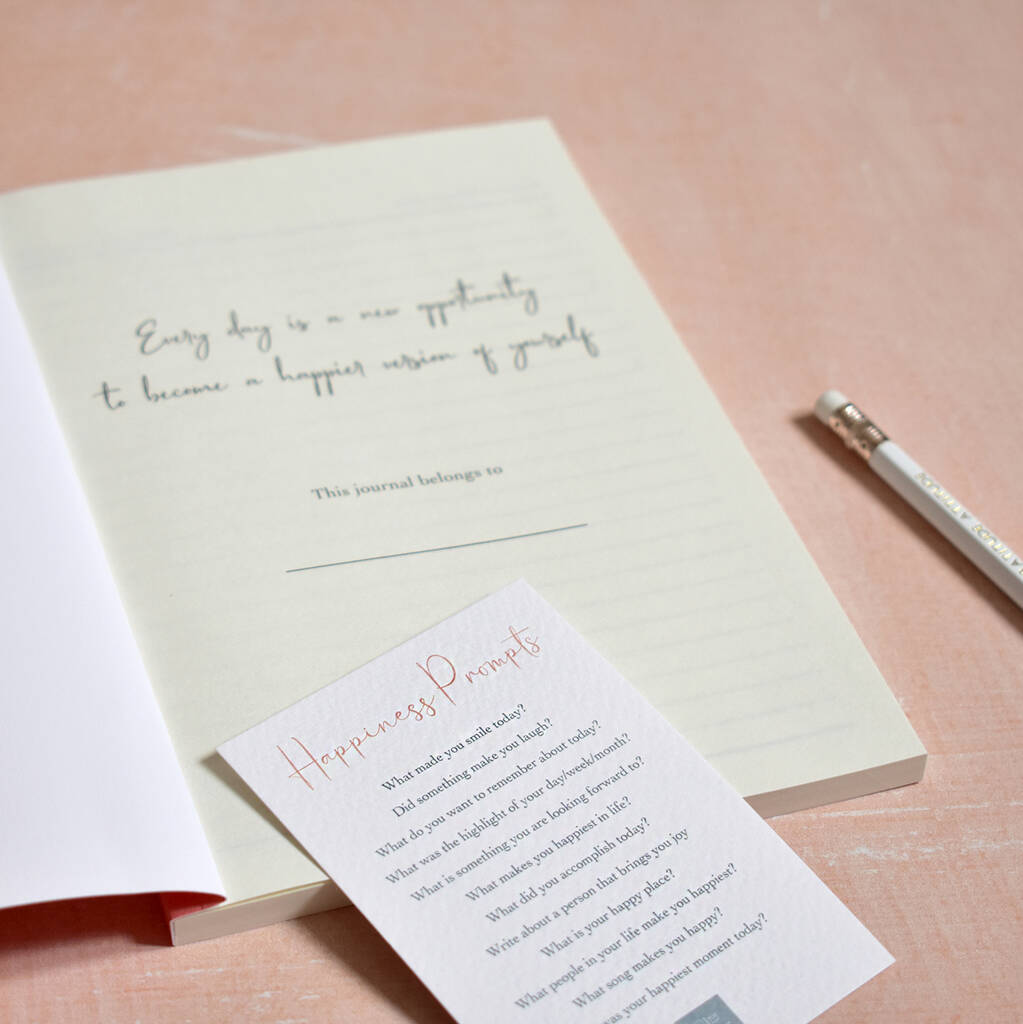 Every day is a new opportunity
to become a happier version of yourself
This journal belongs to
Happiness Prompts
What made you smile today?
Did something make you laugh?
What do you want to remember about today?
What was the highlight of your day/week/month?
What is something you are looking forward to?
What makes you happiest in life?
What did you accomplish today?
Write about a person that brings you joy
What is your happy place?
What people in your life make you happiest?
What song makes you happy?
your happiest moment today?